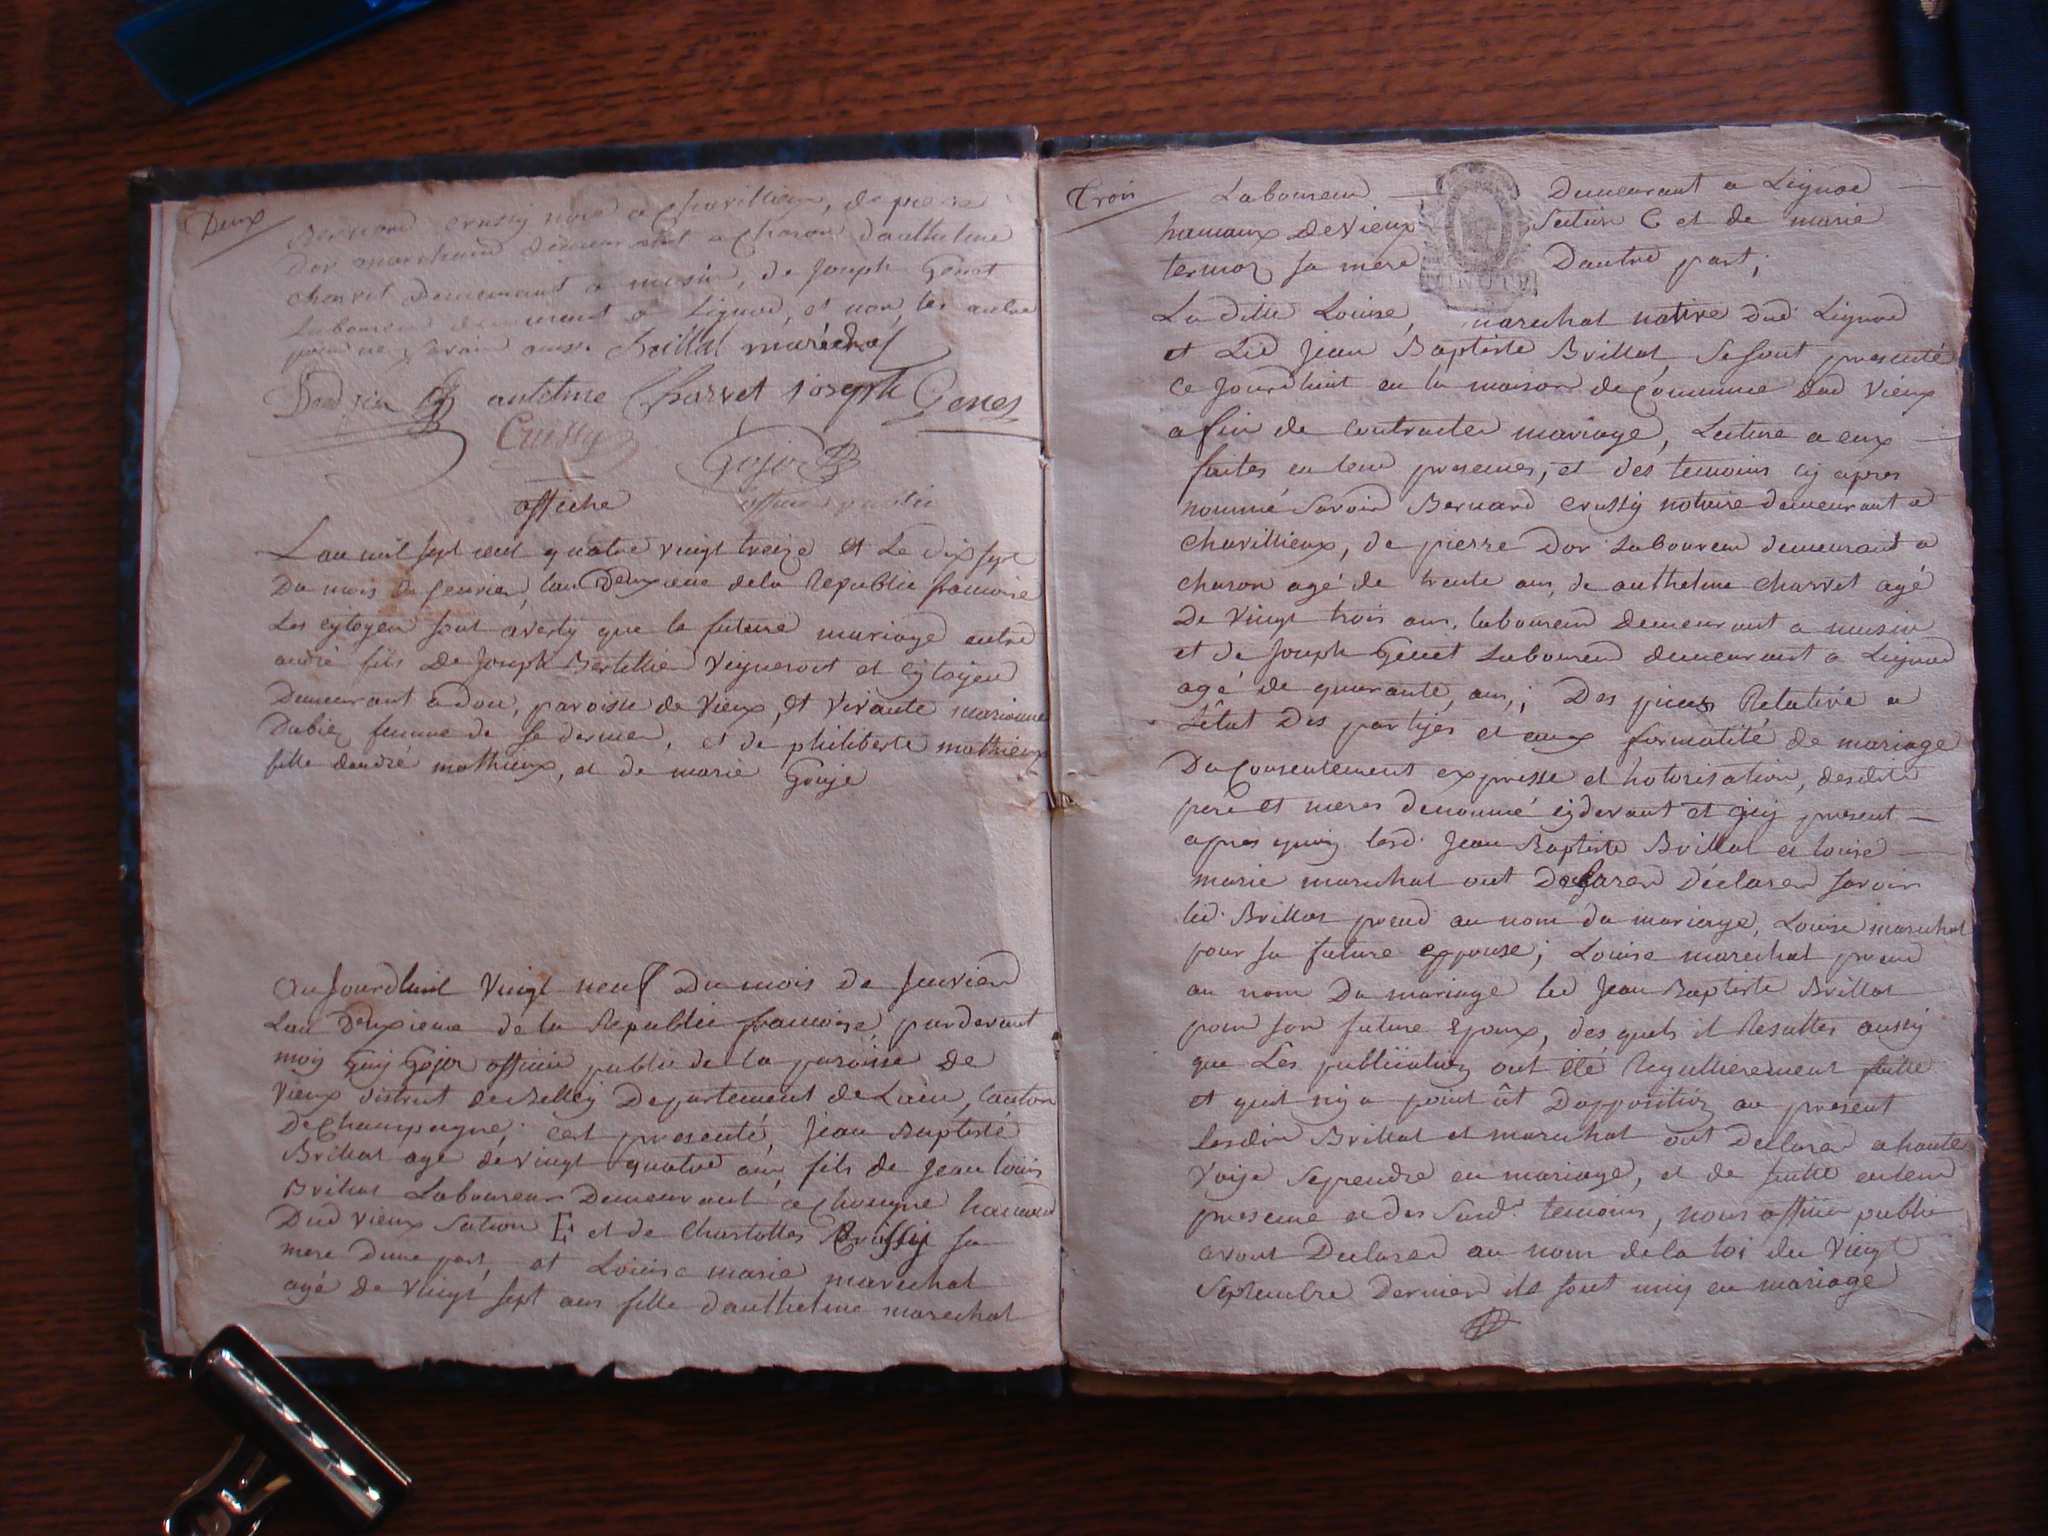 Deux
Bernard Crussy noire a Chavillieux, de pierre
Dor marchand demeurant a Charon dauthelme
charvet Demeurant a musin, de Joseph Genet
Laboureur demeurant a Lignod, et non les autre
pour ne savoir Brillat maréchal
antelme Charvet joseph Genet
Crussy
Gojoz
officier public
affiche
Lan mil sept cent quatre vingt treize et Le dix sept
Du mois de Jenvier, lan Deuxieme dela Republic francoise
Les cytoyen sont averty que la future mariage entre
andré fils De Joseph Bertillier Vigneront et Cytoyen
Demeurant a don, paroisse de Vieux, et vivante marianne
Dabiez femme de Se dernier, et de philiberte mathieux
fille dandré mathieux, et de marie Gouje
Aujourdhuit Vingt neuf Du mois de Jenvier
Lan Deuxieme de la Republic francoise, pardevant
moy Guy Gojoz officier public de la paroisse de
Vieux district de Belley Departement de Lain, Canton
De Champagne; cest presenté, Jean Baptiste
Brillat age de vingt quatre ans fils de Jean Louis
Brillat Laboureur Demeurant a Chongne hameau
Dud Vieux Section E et de Charlottes Crussy sa
mere Dune part, et Louise marie marechal
agé de Vingt Sept ans fille dauthelme marechal
Trois
Laboureur Demeurant a Lignod
hamaux De Vieux Section C et de marie
termoz sa mere Dautre part;
La ditte Louise, marechal native dud Lignod
et Led Jean Baptiste Brillat, Se sont presenté
Ce Jourdhuit en la maison de Commune dud Vieux
afin de contracter mariage, Lecture a eux
faites en leur presences, et des temoins cy apres
nommé Savoir Bernard Crussy notaire demeurant a
Chavillieux, de pierre Dor Laboureur demeurant a
charon agé de trente ans, de authelme Charvet agé
De Vingt trois ans, laboureur demeurant a musin
et de Joseph Genet Laboureur demeurant a Lignod
agé de quarante ans,; Des pieces Relative a
Létat Des partyes et eaux formalité de mariage
Du Consentement expresse et hotorisation, desdits
pere et meres denommé cydevant et cy present
apres quoy lesd. Jean Baptiste Brillat et louise
marie marechal ont Declarer Déclarer savoir
led. Brillat prend au nom du mariage, Louise marechal
pour sa future eppouse; Louise marechal prend
au nom Du mariage led Jean Baptiste Brillat
pour son future Epoux, des quels il Resultes aussy
que Les publications ont été Regullierement faitte
et quil ny a point út Doppositions au present
Lesdits Brillat et marechal ont Declarer a haute
Voix Seprendre en mariage, et de suitte en leur
presence et des Susd. temoins, nous officier public
avont Declarer au nom de la loi du Vingt
Septembre Dernier ils sont uniy en mariage